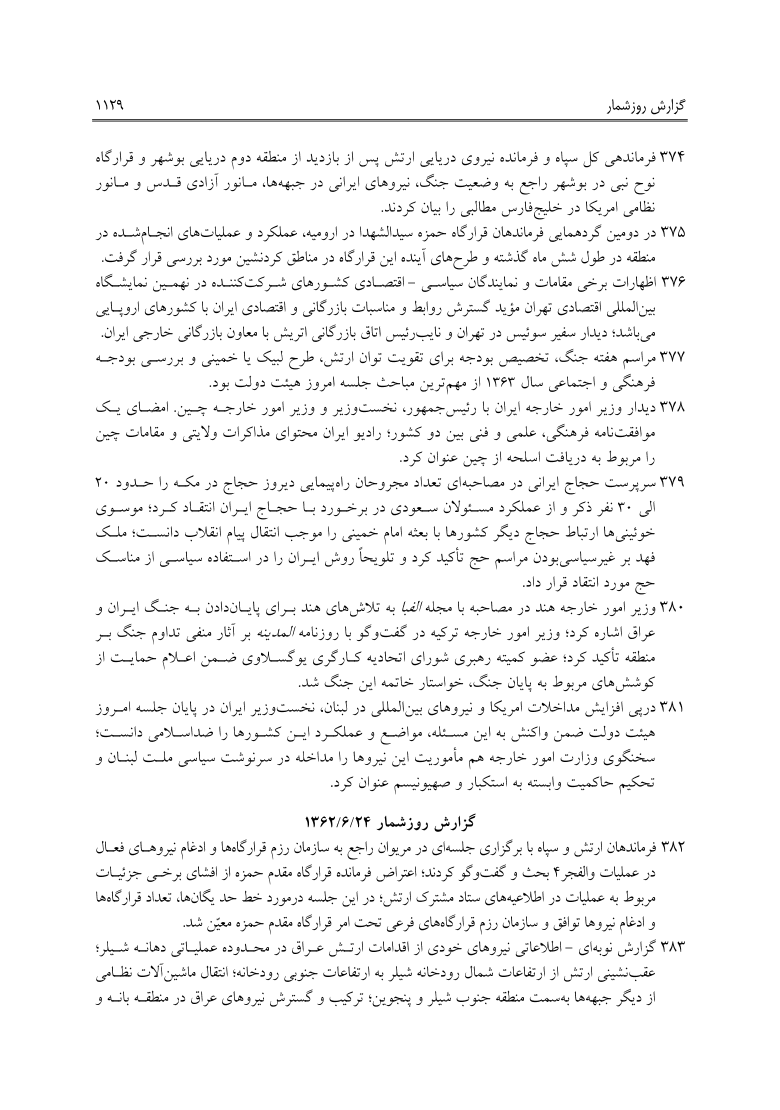 گزارش روزشمار ۱۱۲۹
۳۷۴ فرماندهی کل سپاه و فرمانده نیروی دریایی ارتش پس از بازدید از منطقه دوم دریایی بوشهر و قرارگاه
نوح نبی در بوشهر راجع به وضعیت جنگ، نیروهای ایرانی در جبهه‌ها، مـانور آزادی قـدس و مـانور
نظامی امریکا در خلیج‌فارس مطالبی را بیان کردند.
۳۷۵ در دومین گردهمایی فرماندهان قرارگاه حمزه سیدالشهدا در ارومیه، عملکرد و عملیات‌های انجـام‌شـده در
منطقه در طول شش ماه گذشته و طرح‌های آینده این قرارگاه در مناطق کردنشین مورد بررسی قرار گرفت.
۳۷۶ اظهارات برخی مقامات و نمایندگان سیاسـی – اقتصـادی کشـورهای شـرکت‌کننـده در نهمـین نمایشـگاه
بین‌المللی اقتصادی تهران مؤید گسترش روابط و مناسبات بازرگانی و اقتصادی ایران با کشورهای اروپـایی
می‌باشد؛ دیدار سفیر سوئیس در تهران و نایب‌رئیس اتاق بازرگانی اتریش با معاون بازرگانی خارجی ایران.
۳۷۷ مراسم هفته جنگ، تخصیص بودجه برای تقویت توان ارتش، طرح لبیک یا خمینی و بررسـی بودجـه
فرهنگی و اجتماعی سال ۱۳۶۳ از مهم‌ترین مباحث جلسه امروز هیئت دولت بود.
۳۷۸ دیدار وزیر امور خارجه ایران با رئیس‌جمهور، نخست‌وزیر و وزیر امور خارجـه چـین. امضـای یـک
موافقت‌نامه فرهنگی، علمی و فنی بین دو کشور؛ رادیو ایران محتوای مذاکرات ولایتی و مقامات چین
را مربوط به دریافت اسلحه از چین عنوان کرد.
۳۷۹ سرپرست حجاج ایرانی در مصاحبه‌ای تعداد مجروحان راه‌پیمایی دیروز حجاج در مکـه را حـدود ۲۰
الی ۳۰ نفر ذکر و از عملکرد مسـئولان سـعودی در برخـورد بـا حجـاج ایـران انتقـاد کـرد؛ موسـوی
خوئینی‌ها ارتباط حجاج دیگر کشورها با بعثه امام خمینی را موجب انتقال پیام انقلاب دانسـت؛ ملـک
فهد بر غیرسیاسی‌بودن مراسم حج تأکید کرد و تلویحاً روش ایـران را در اسـتفاده سیاسـی از مناسـک
حج مورد انتقاد قرار داد.
۳۸۰ وزیر امور خارجه هند در مصاحبه با مجله الفبا به تلاش‌های هند بـرای پایـان‌دادن بـه جنـگ ایـران و
عراق اشاره کرد؛ وزیر امور خارجه ترکیه در گفت‌وگو با روزنامه المدینه بر آثار منفی تداوم جنگ بـر
منطقه تأکید کرد؛ عضو کمیته رهبری شورای اتحادیه کـارگری یوگسـلاوی ضـمن اعـلام حمایـت از
کوشش‌های مربوط به پایان جنگ، خواستار خاتمه این جنگ شد.
۳۸۱ درپی افزایش مداخلات امریکا و نیروهای بین‌المللی در لبنان، نخست‌وزیر ایران در پایان جلسه امـروز
هیئت دولت ضمن واکنش به این مسـئله، مواضـع و عملکـرد ایـن کشـورها را ضداسـلامی دانسـت؛
سخنگوی وزارت امور خارجه هم مأموریت این نیروها را مداخله در سرنوشت سیاسی ملـت لبنـان و
تحکیم حاکمیت وابسته به استکبار و صهیونیسم عنوان کرد.
گزارش روزشمار ۱۳۶۲/۶/۲۴
۳۸۲ فرماندهان ارتش و سپاه با برگزاری جلسه‌ای در مریوان راجع به سازمان رزم قرارگاه‌ها و ادغام نیروهـای فعـال
در عملیات والفجر۴ بحث و گفت‌وگو کردند؛ اعتراض فرمانده قرارگاه مقدم حمزه از افشای برخـی جزئیـات
مربوط به عملیات در اطلاعیه‌های ستاد مشترک ارتش؛ در این جلسه درمورد خط حد یگان‌ها، تعداد قرارگاه‌ها
و ادغام نیروها توافق و سازمان رزم قرارگاه‌های فرعی تحت امر قرارگاه مقدم حمزه معیّن شد.
۳۸۳ گزارش نوبه‌ای – اطلاعاتی نیروهای خودی از اقدامات ارتـش عـراق در محـدوده عملیـاتی دهانـه شـیلر؛
عقب‌نشینی ارتش از ارتفاعات شمال رودخانه شیلر به ارتفاعات جنوبی رودخانه؛ انتقال ماشین‌آلات نظـامی
از دیگر جبهه‌ها به‌سمت منطقه جنوب شیلر و پنجوین؛ ترکیب و گسترش نیروهای عراق در منطقـه بانـه و